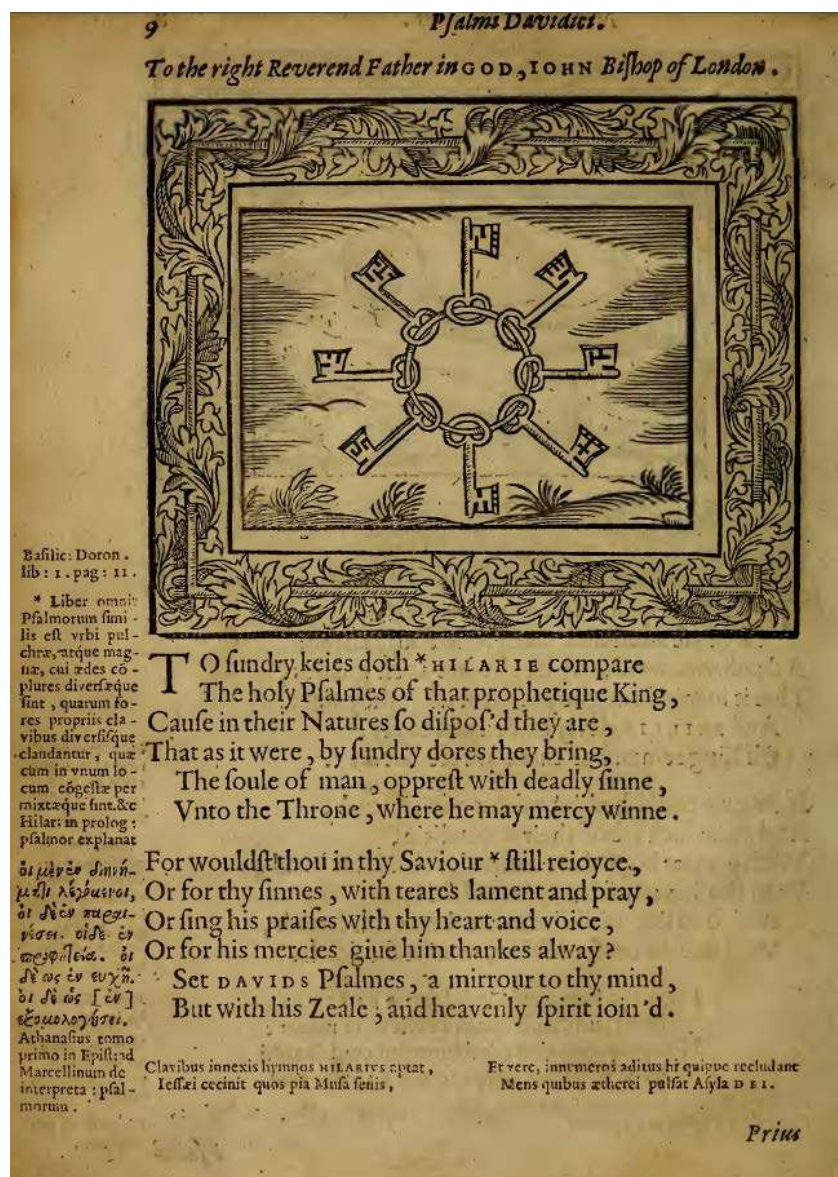 9 Pſalmi Davidici.
To the right Reverend Father in GOD, IOHN Biſhop of London.
Baſilic: Doron.
lib: 1. pag: 11.
* Liber omnis
Pſalmorum ſimi-
lis eſt vrbi pul-
chræ, atque mag-
næ, cui ædes cō-
plures diverſæque
ſint, quarum fo-
res propriis cla-
vibus diverſiſque
claudantur, quæ
cùm in vnum lo-
cum cōgeſtæ per
mixtæque ſint. &c
Hilar: in prolog:
pſalmor explanat
οἱ μὲν ἐν
οἱ δὲ ἐν παραι-
νέσει. οἱ δὲ ἐν
προφητεία. οἱ
δὲ ὡς ἐν εὐχῆ.
οἱ δὲ ὡς [ἐν]
ἐξομολογήσει.
Athanaſius tomo
primo in Epiſt: ad
Marcellinum de
interpreta: pſal-
morum.
TO ſundry keies doth * HILARIE compare
The holy Pſalmes of that prophetique King,
Cauſe in their Natures ſo diſpoſ'd they are,
That as it were, by ſundry dores they bring,
The ſoule of man, oppreſt with deadly ſinne,
Vnto the Throne, where he may mercy winne.
For wouldſt thou in thy Saviour * ſtill reioyce,
Or for thy ſinnes, with teares lament and pray,
Or ſing his praiſes with thy heart and voice,
Or for his mercies giue him thankes alway?
Set DAVIDS Pſalmes, a mirrour to thy mind,
But with his Zeale, and heavenly ſpirit ioin'd.
Clavibus innexis hymnos HILARIVS aptat,
Ieſſæi cecinit quos pia Muſa ſenis,
Et vere, innumeros aditus hi quippe recludant
Mens quibus ætherei pulſat Aſyla DEI.
Prius